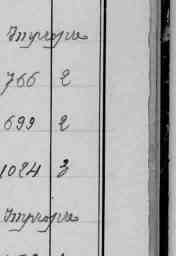 Impropre
766 2
699 2
1024 3
Impropre